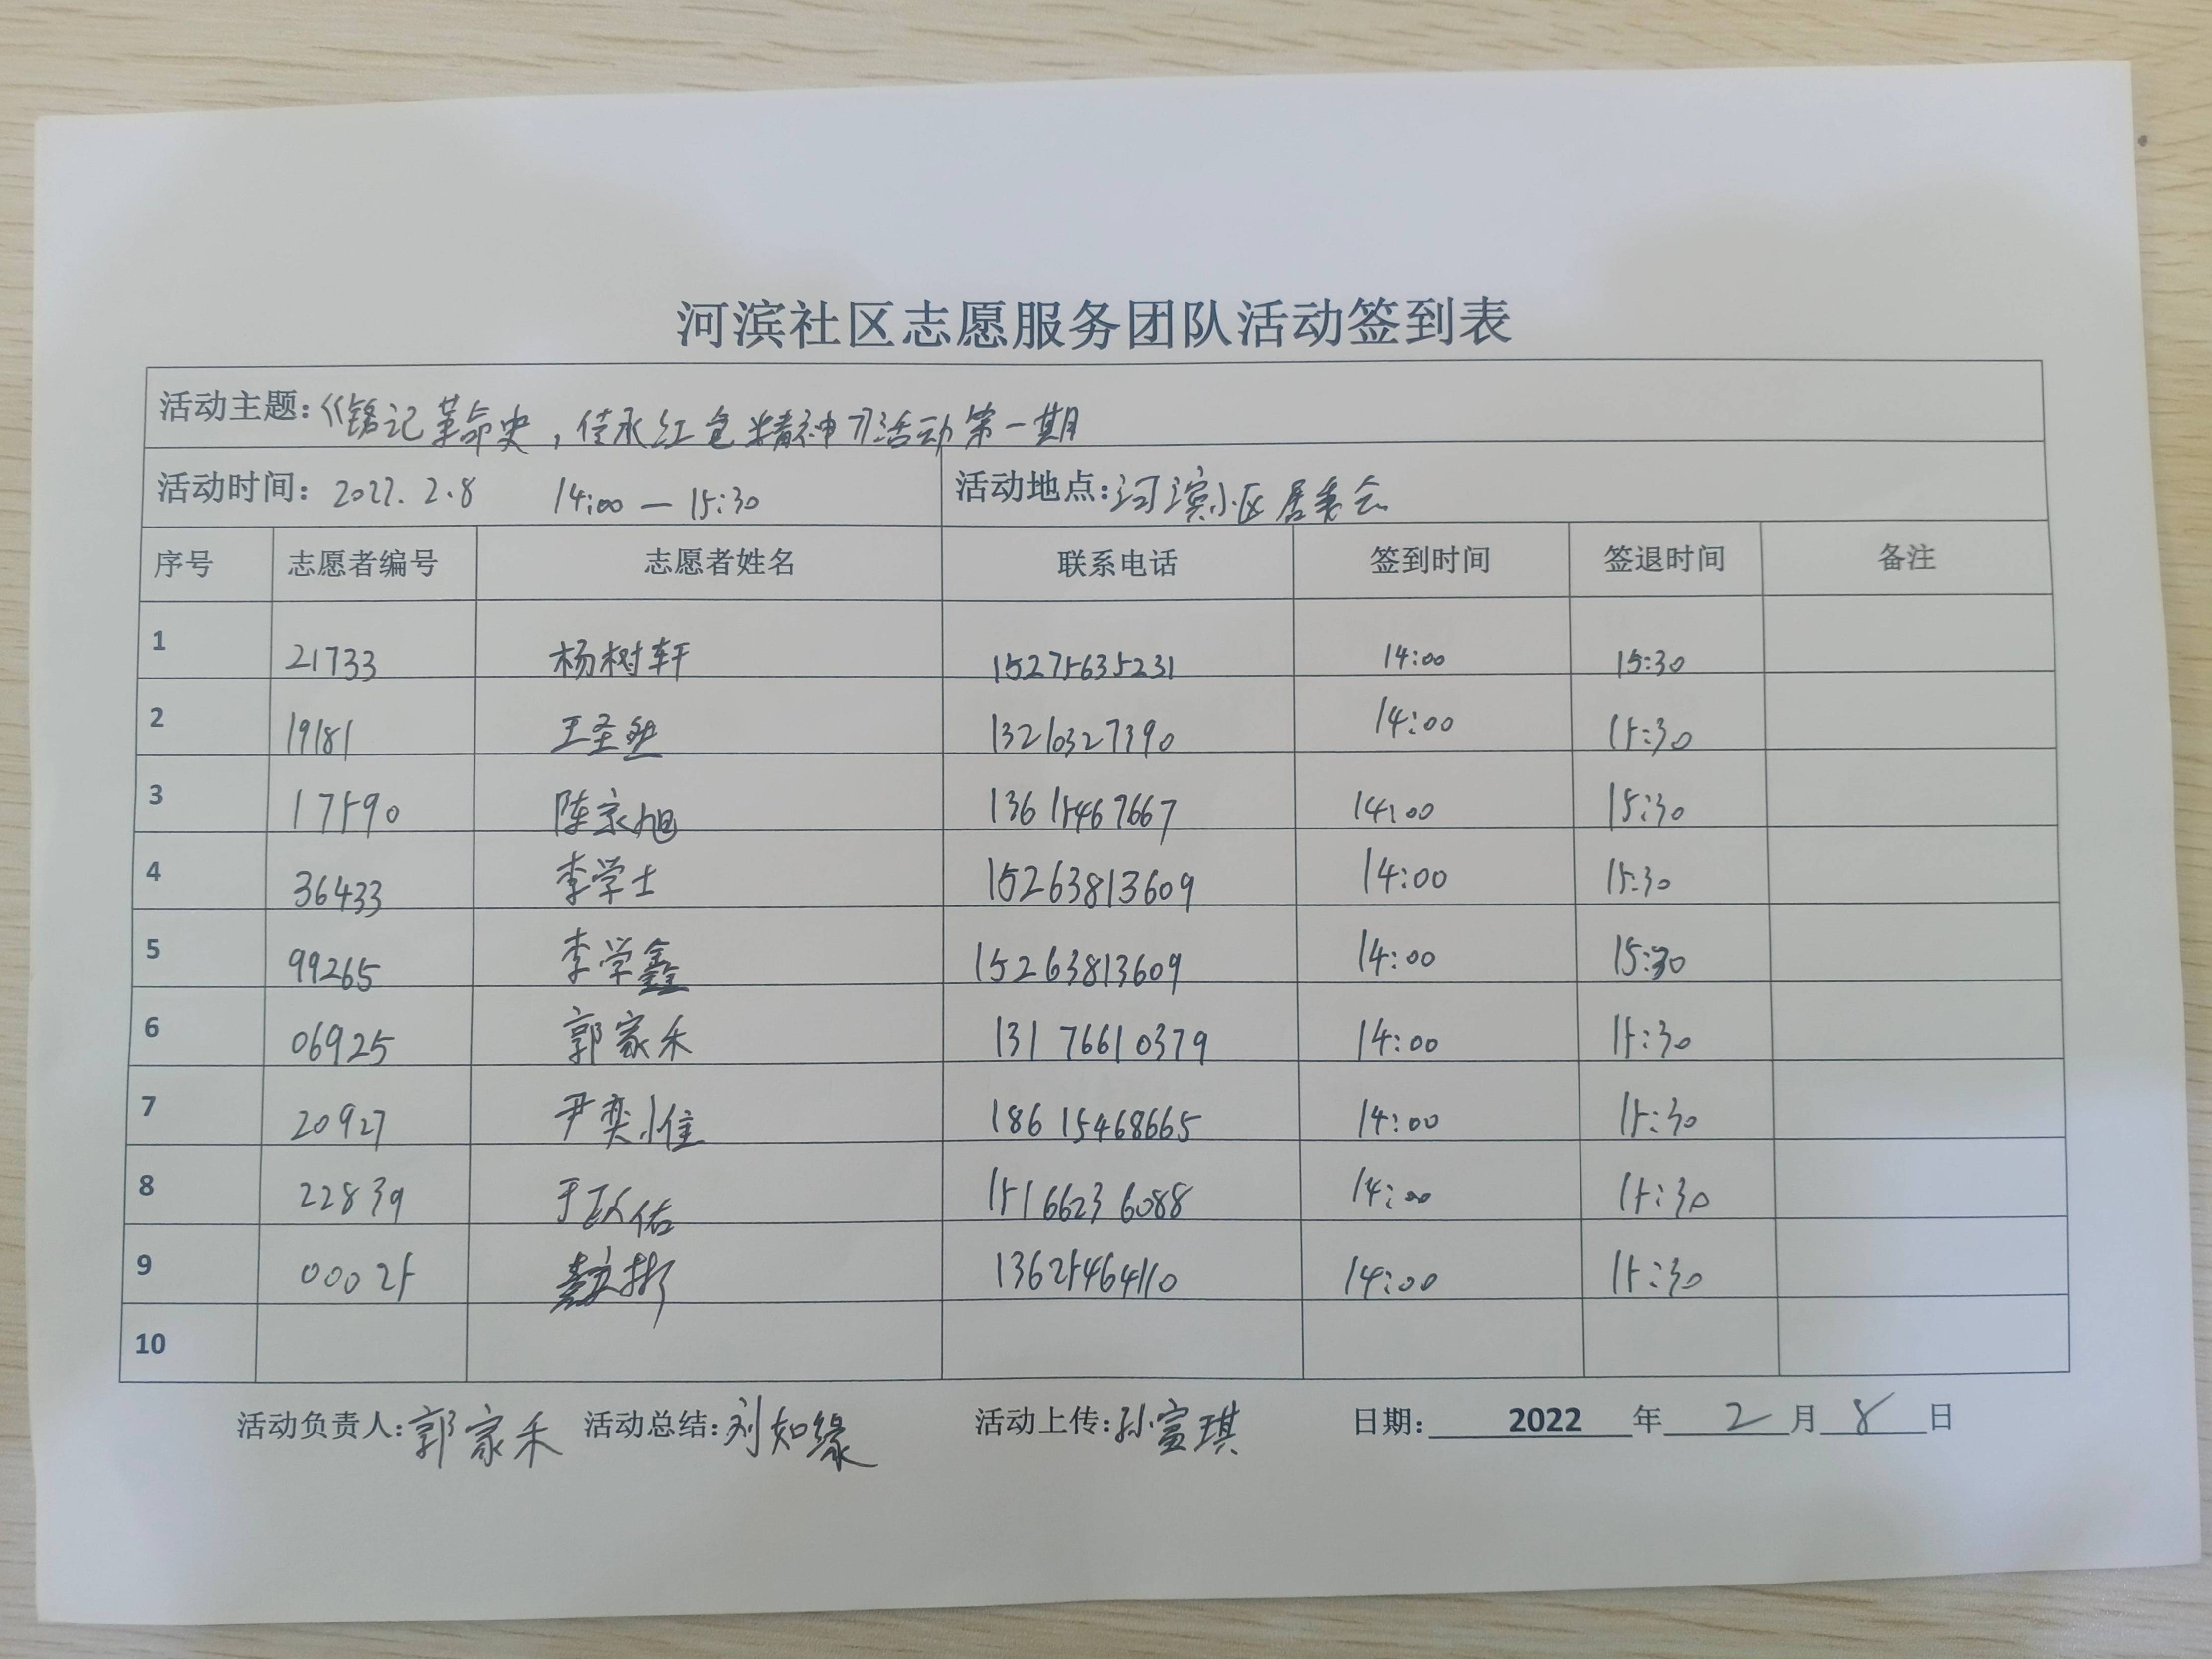 河滨社区志愿服务团队活动签到表
活动主题:《铭记革命史,传承红色精神》活动第一期
活动时间: 2022.2.8 14:00—15:30 活动地点:河滨小区居委会
序号 志愿者编号 志愿者姓名 联系电话 签到时间 签退时间 备注
1 21733 杨树轩 15275635231 14:00 15:30
2 19181 王圣 13210327390 14:00 15:30
3 17590 陈家旭 13615467667 14:00 15:30
4 36433 李学士 15263813609 14:00 15:30
5 99265 李学鑫 15263813609 14:00 15:30
6 06925 郭家禾 13176610379 14:00 15:30
7 20927 尹奕惟 18615468665 14:00 15:30
8 22839 于佑 15166236088 14:00 15:30
9 00025 彬 13625464110 14:00 15:30
10
活动负责人:郭家禾 活动总结:刘如缘 活动上传:孙宣琪 日期: 2022 年 2 月 8 日